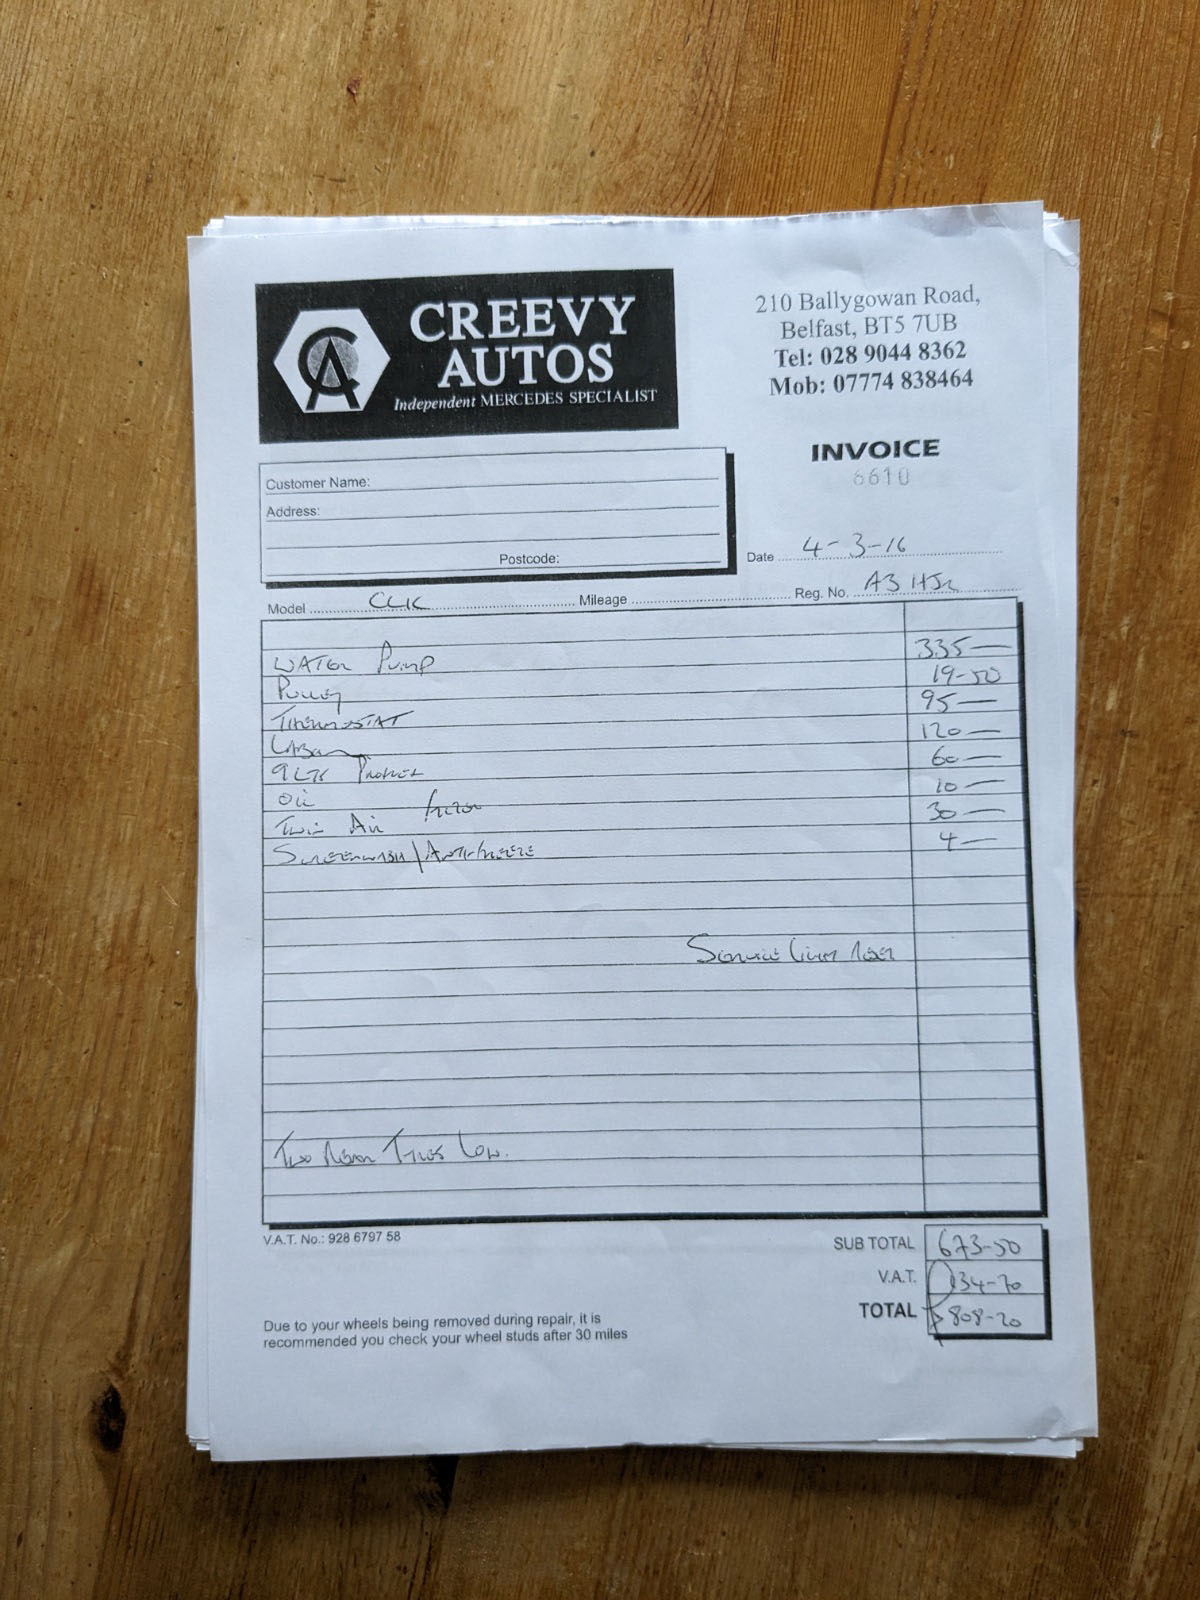 CREEVY
AUTOS
Independent MERCEDES SPECIALIST
210 Ballygowan Road,
Belfast, BT5 7UB
Tel: 028 9044 8362
Mob: 07774 838464
INVOICE
6610
Customer Name:
Address:
Postcode:
Date 4-3-16
Model CLK Mileage Reg. No. A3 HJR
WATER PUMP 335—
PULLEY 19-50
THERMOSTAT 95—
LABOUR 120—
9 LTR 60—
OIL FILTER 10—
TWIN AIR 30—
SCREENWASH/ANTI-FREEZE 4—
SERVICE LIGHT RESET
TWO REAR TYRES LOW.
V.A.T. No.: 928 6797 58
SUB TOTAL 673-50
V.A.T. 134-70
TOTAL 808-20
Due to your wheels being removed during repair, it is
recommended you check your wheel studs after 30 miles